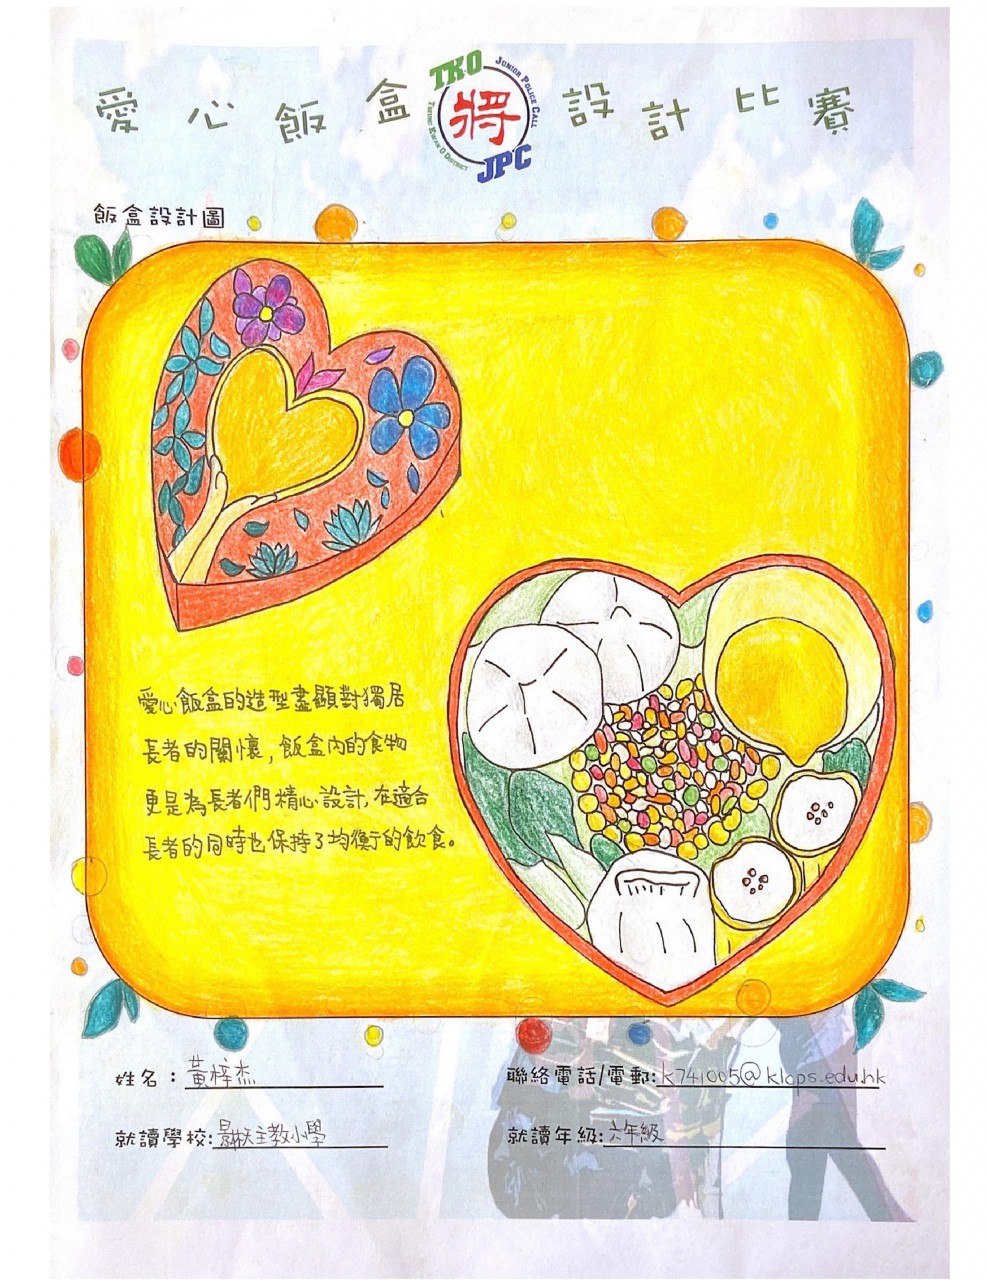 愛心飯盒 設計比賽
TKO
JUNIOR POLICE CALL
將
TSEUNG KWAN O DISTRICT
JPC
飯盒設計圖
愛心飯盒的造型盡顯對獨居
長者的關懷,飯盒內的食物
更是為長者們精心設計,在適合
長者的同時也保持了均衡的飲食。
姓名:黃梓杰
聯絡電話/電郵:k741005@klcps.edu.hk
就讀學校:天主教小學
就讀年級:六年級